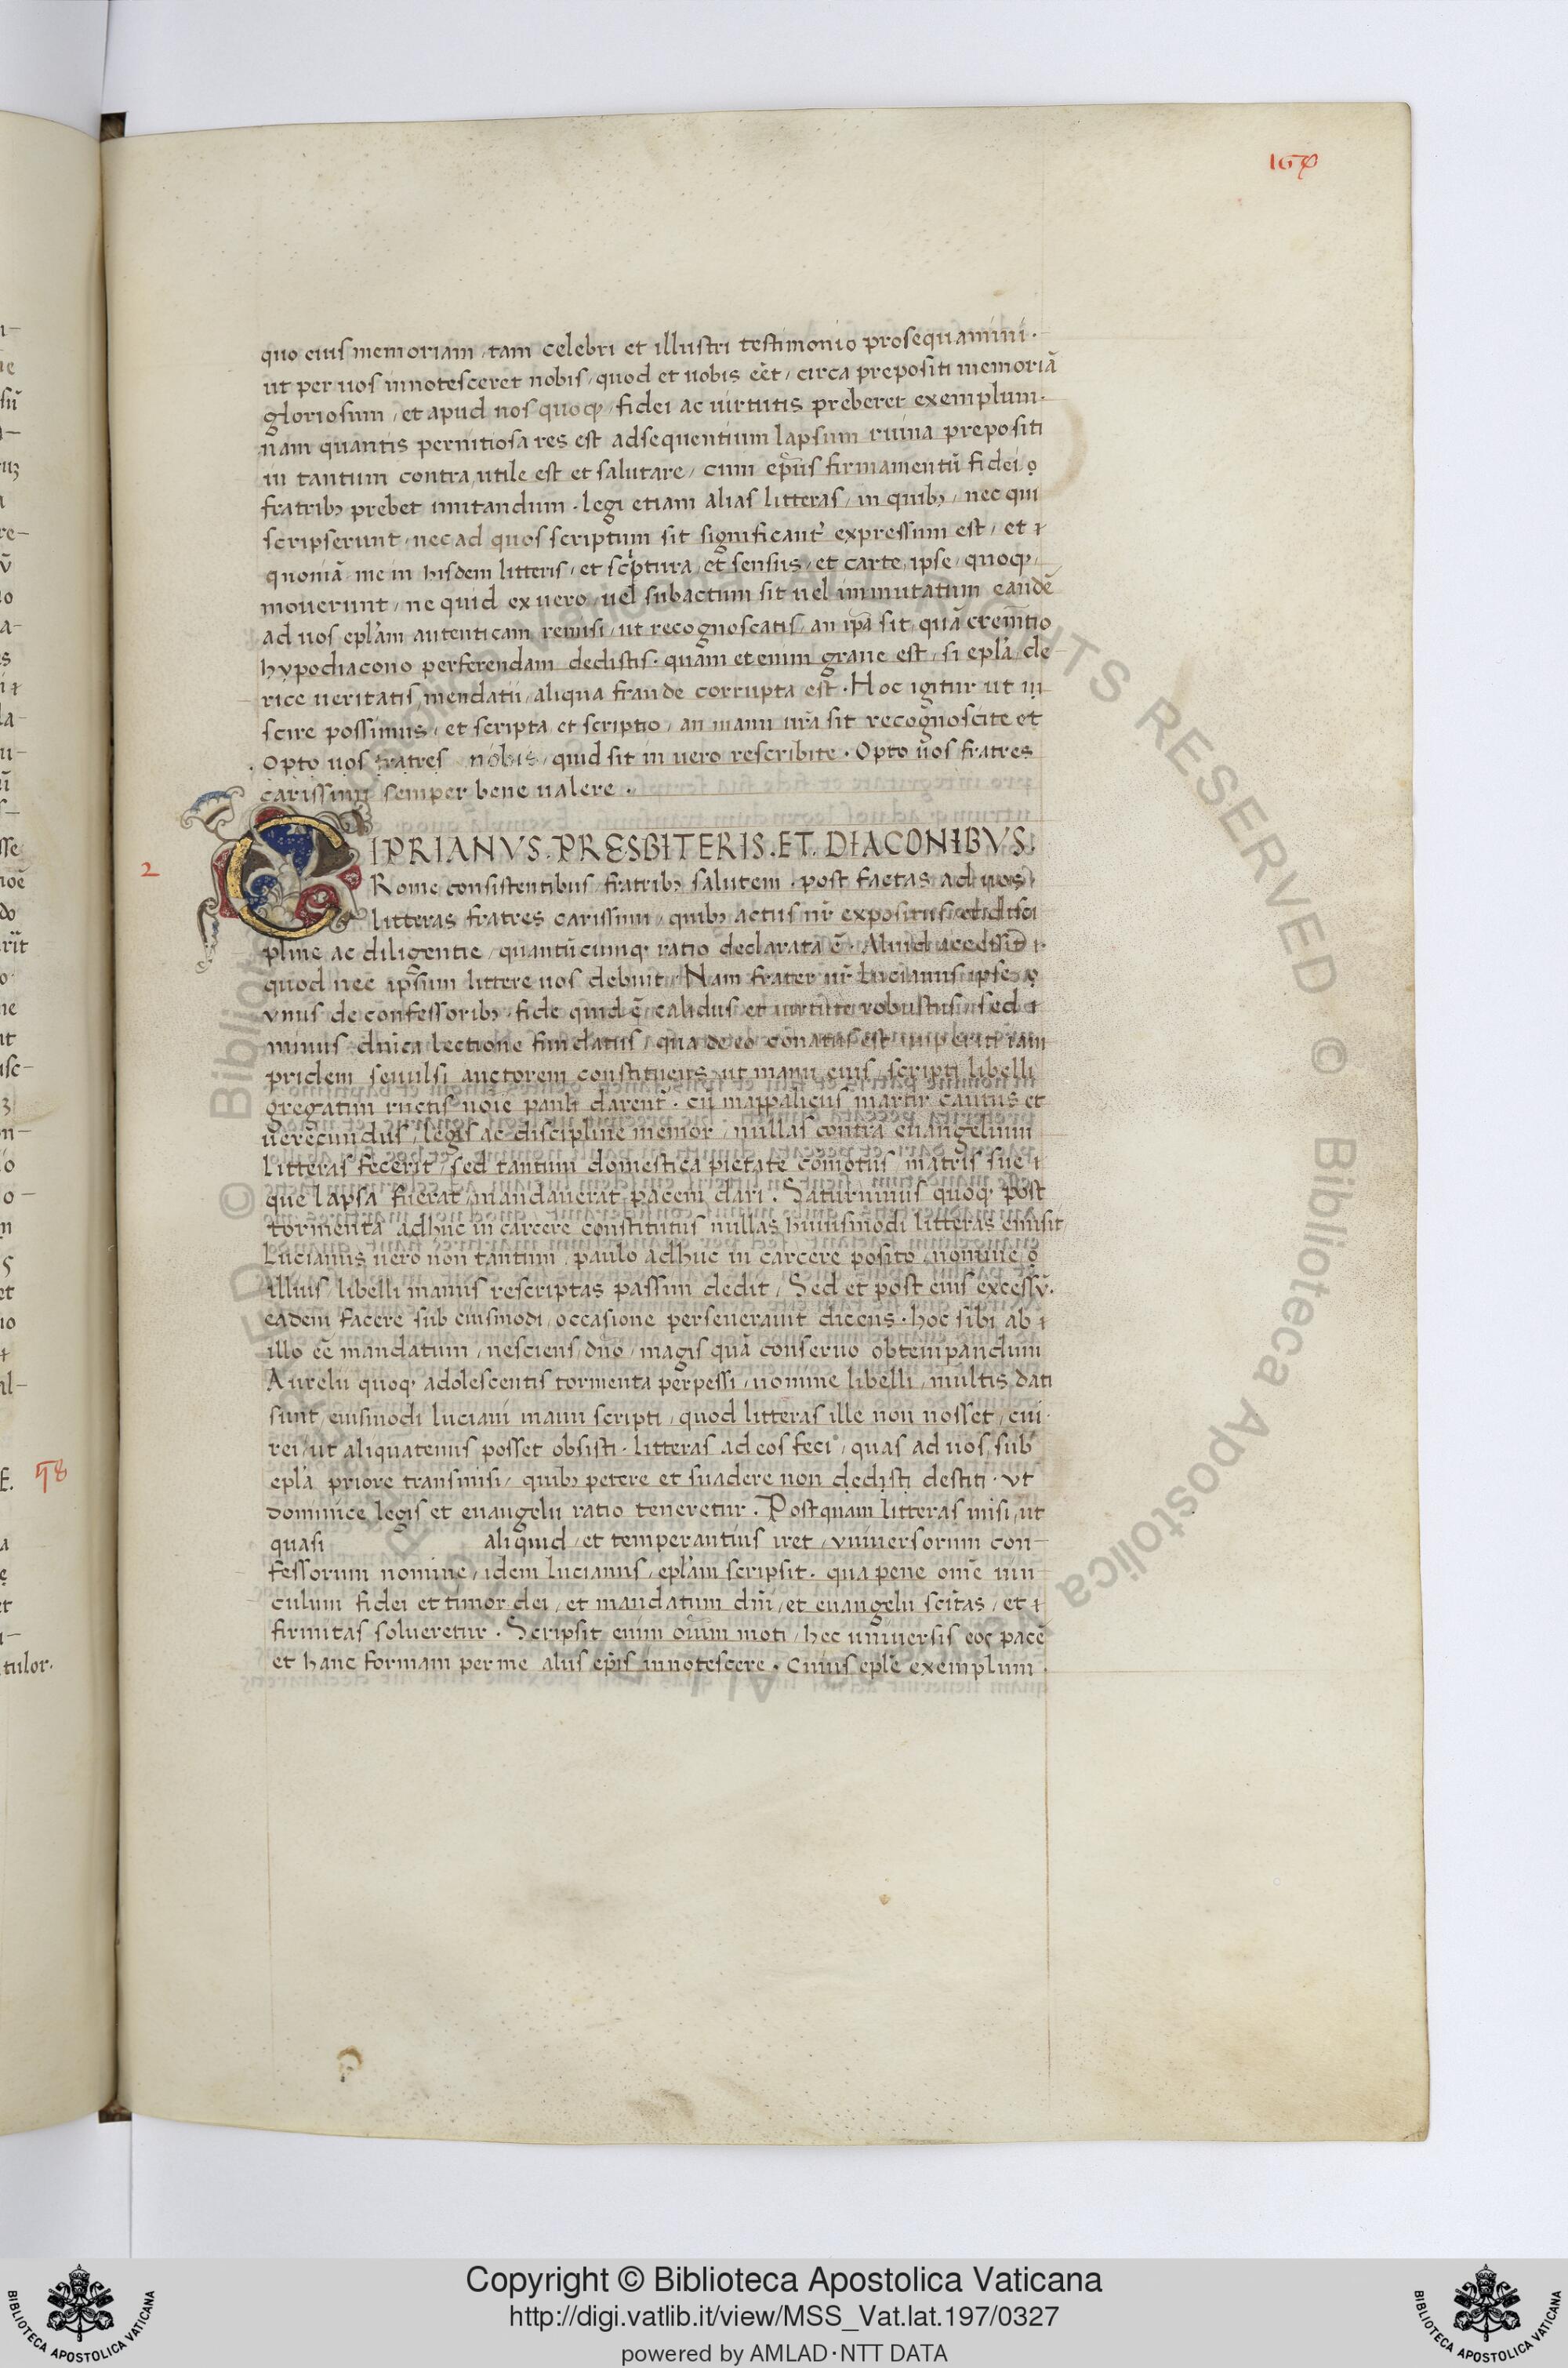 164
quo eius memoriam, tam celebri et illustri testimonio prosequamini.
ut per uos innotesceret nobis, quod et uobis eēt, circa prepositi memoriā
gloriosum, et apud nos quoqꝫ, fidei ac uirtutis preberet exemplum.
nam quantis pernitiosa res est adsequentium lapsum ruina prepositi
in tantum contra, utile est et salutare, cum ep̄us firmamentū fidei
fratribꝫ prebet imitandum. legi etiam alias litteras, in quibꝫ, nec qui
scripserunt, nec ad quos scriptum sit significant᷑ expressum est, et
quoniā me in hisdem litteris, et sc̄ptura, et sensus, et carte, ipse, quoqꝫ,
mouerunt, ne quid ex uero, uel subactum sit uel immutatum eandē
ad uos epl̄am autenticam remisi, ut recognoscatis, an ip̄a sit, quā crem̄tio
hypodiacono perferendam dedistis. quam etenim graue est, si epl̄a cle
rice ueritatis, mendatii, aliqua fraude corrupta est. Hoc igitur ut in
scire possimus, et scripta, et scriptio, an manu ur̄a sit recognoscite et
Opto uos fratres nobis, quid sit in uero rescribite. Opto uos fratres
carissimi semper bene ualere.
2
CIPRIANVS. PRESBITERIS. ET. DIACONIBVS.
Rome consistentibus fratribꝫ salutem. post factas ad uos
litteras fratres carissimi, quibꝫ actus nr̄ expositus et disci
pline ac diligentie, quantūcumqꝫ ratio declarata ē. Aliud accessit
quod nec ipsum littere uos debuit. Nam frater nr̄ Lucianus ipse
vnus de confessoribꝫ, fide quidē calidus et uirtute robustus, sed
minus dn̄ica lectione fundatus, qua de eo conatus est imperiti iam
pridem seuulsi auctorem constituens, ut manu eius, scripti libelli
gregatim ructis noīe pauli darent᷑. cū mappalicus martir cautus et
uerecundus, legis ac discipline memor, nullas contra euangelium
litteras fecerit, sed tantum domestica pietate comotus, matris sue
que lapsa fuerat, mandauerat pacem dari. Saturninus quoqꝫ post
tormenta adhuc in carcere constitutus nullas huiusmodi litteras emisit
Lucianus uero non tantum, paulo adhuc in carcere posito, nomine
illius libelli manus rescriptas passim dedit, Sed et post eius excessū.
eadem facere sub eiusmodi, occasione perseuerauit dicens. hoc sibi ab
illo eē mandatum, nesciens dn̄o magis quā conseruo obtempandum
Aurelii quoqꝫ adolescentis tormenta perpessi, nomine libelli, multis dati
sunt, eiusmodi luciani manu scripti, quod litteras ille non nosset, cui
rei, ut aliquatenus posset obsisti. litteras ad eos feci, quas ad uos, sub
epl̄a priore transmisi, quibꝫ petere et suadere non dedisti destiti. vt
dominice legis et euangelii ratio teneretur. Postquam litteras misi, ut
quasi aliquid, et temperantius iret, vniuersorum con-
fessorum nomine, idem lucianus, epl̄am scripsit. qua pene om̄e uin
culum fidei et timor dei, et mandatum dn̄i, et euangelii sc̄itas, et
firmitas solueretur. Scripsit enim om̄ium moti, hec uniuersis eos pacē
et hanc formam per me aliis ep̄is innotescere. Cuius epl̄e exemplum.
58
Copyright © Biblioteca Apostolica Vaticana
http://digi.vatlib.it/view/MSS_Vat.lat.197/0327
powered by AMLAD·NTT DATA
BIBLIOTECA APOSTOLICA VATICANA
BIBLIOTECA APOSTOLICA VATICANA